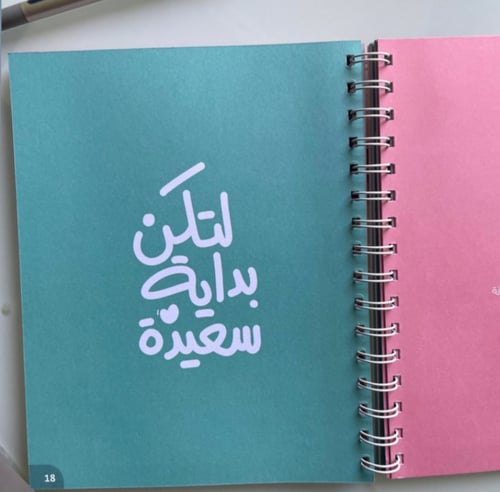 لتكن
بداية
سعيدة
18